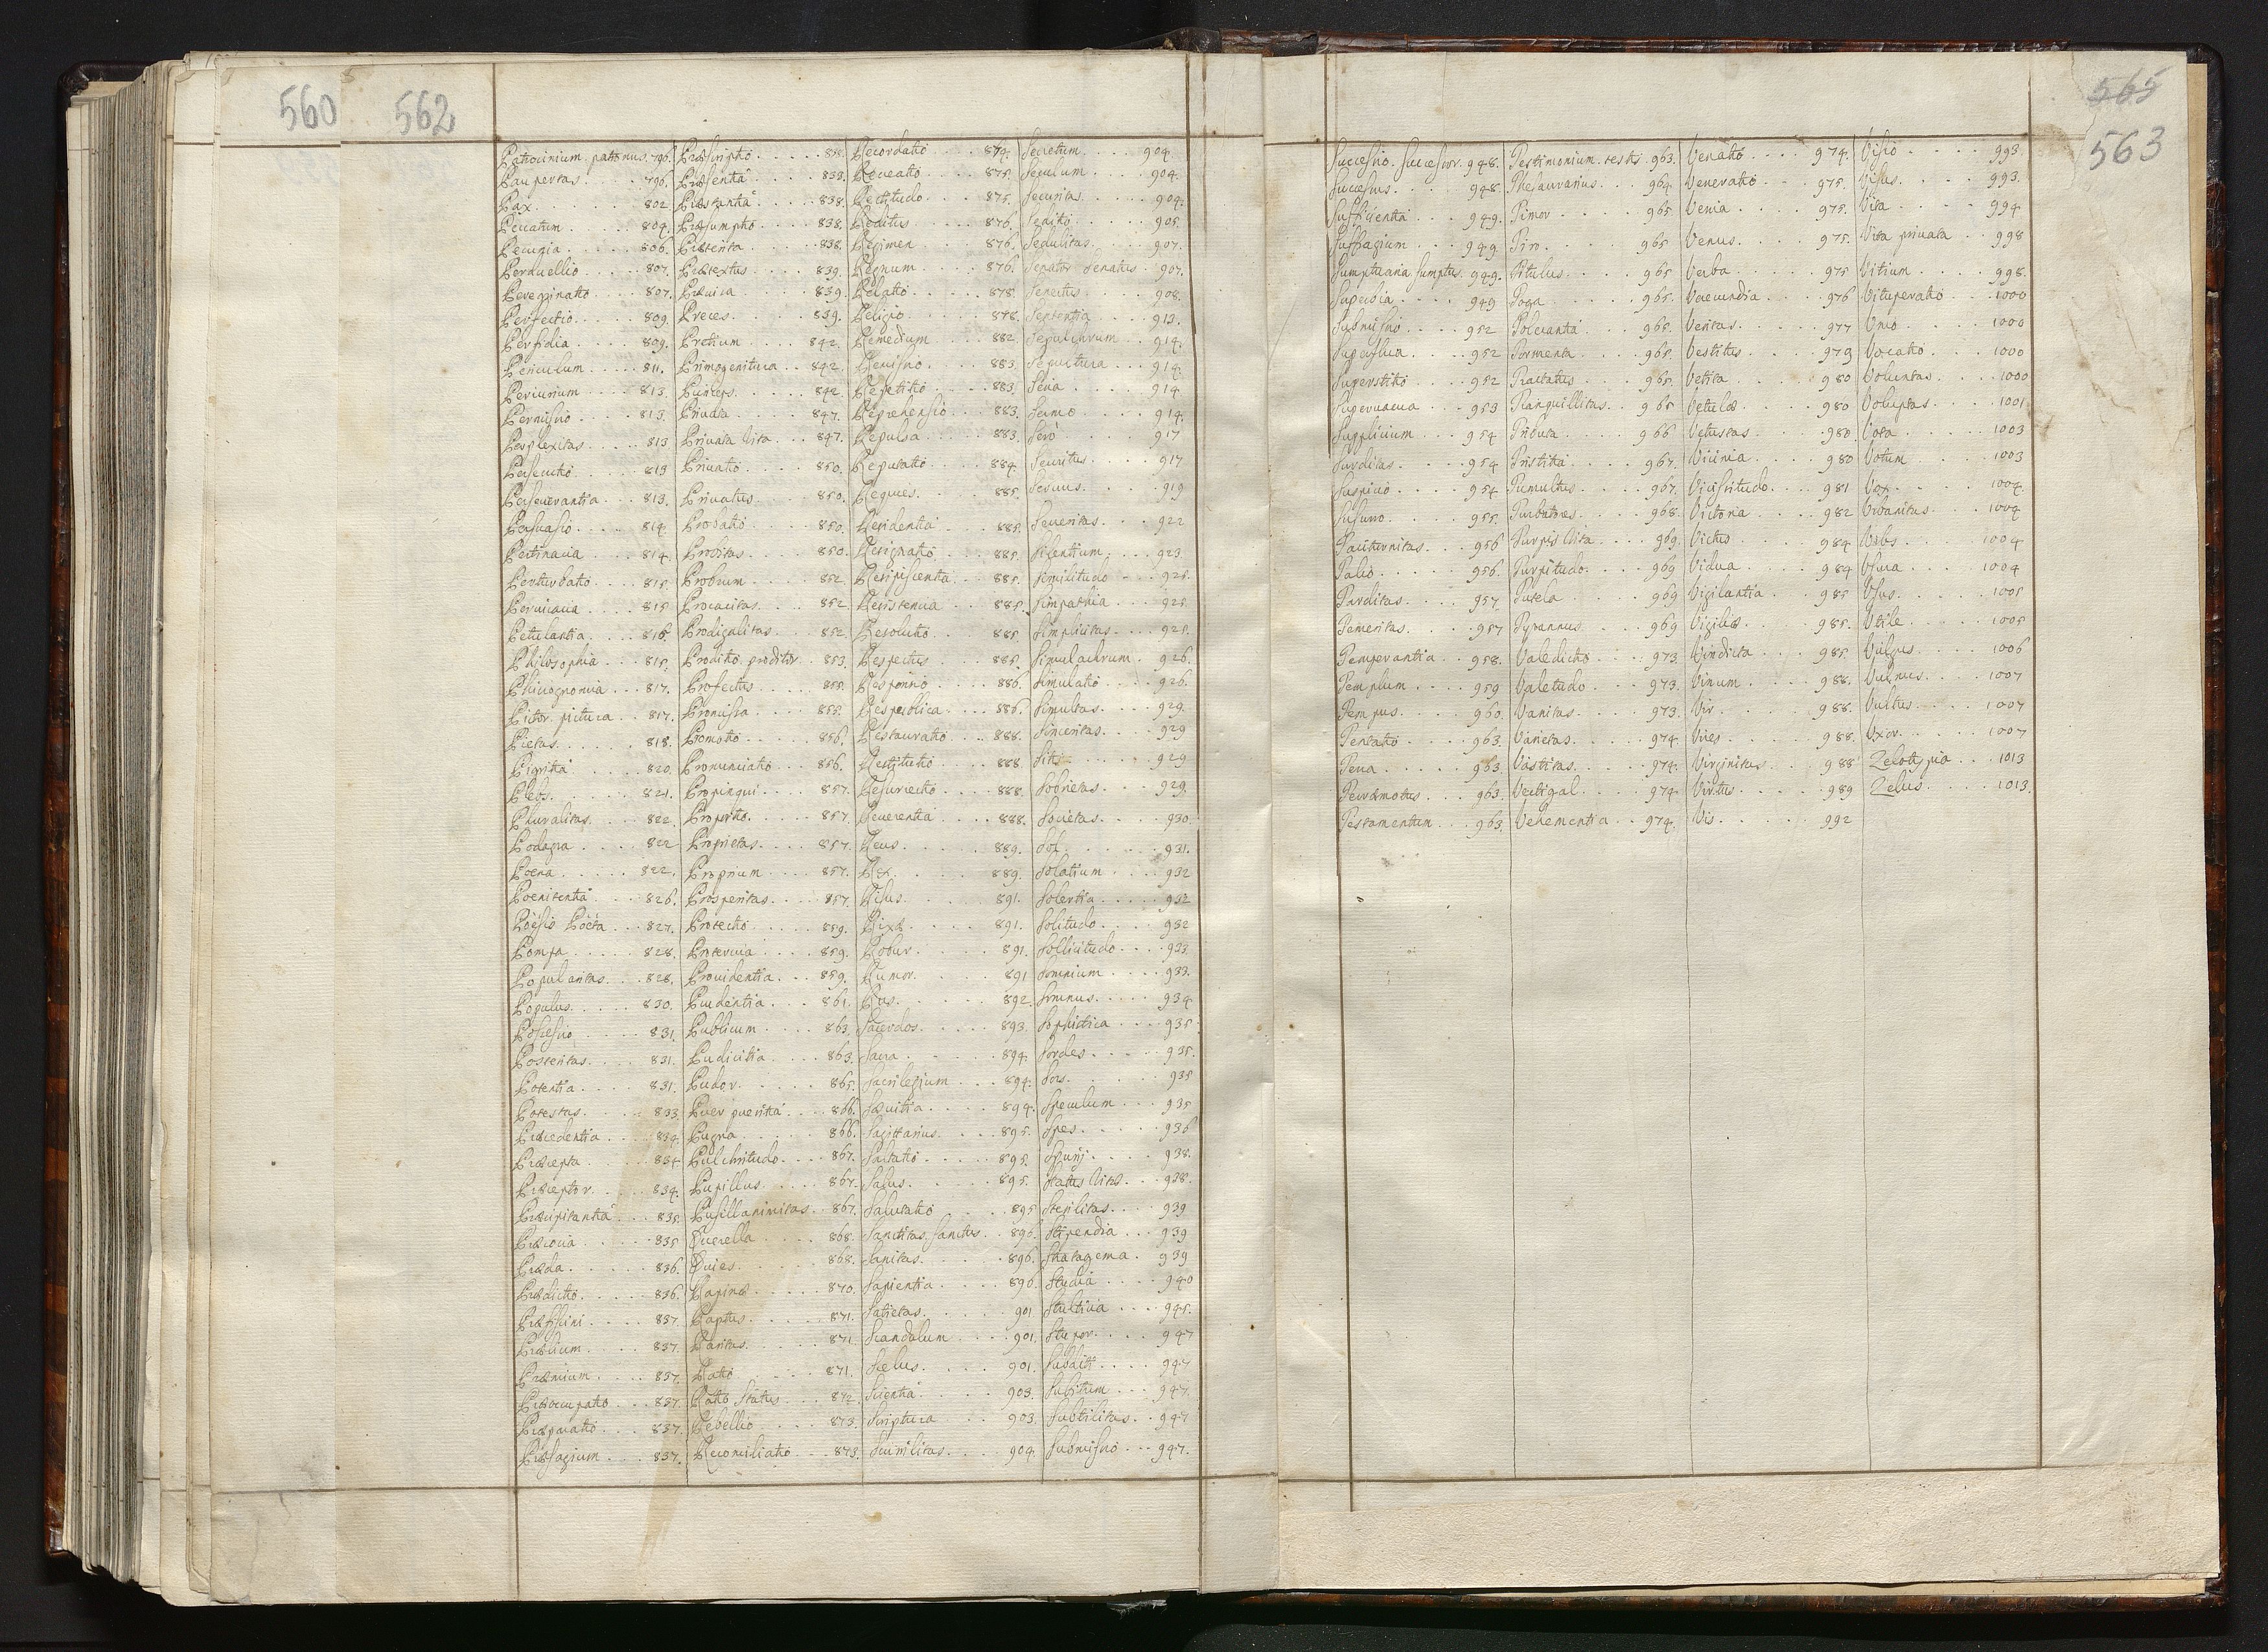 560 562
Patrocinium. patronus. 796.
Paupertas. . . . . 796.
Pax. . . . . . 802
Peccatum. . . . . 804.
Pecunia. . . . . 806.
Perduellio. . . . . 807.
Peregrinatio. . . . 807.
Perfectio. . . . . 809.
Perfidia. . . . . 809.
Periculum. . . . . 811.
Periurium. . . . 813.
Permissio. . . . . 813.
Perplexitas. . . . 813
Persecutio. . . . 813
Perseverantia. . . 813.
Persuasio. . . . . 814.
Pertinacia. . . . 814.
Perturbatio. . . . 815.
Pervicacia. . . . 815
Petulantia. . . . 815.
Philosophia. . . 815.
Phisiognomia. . . 817.
Pictor. pictura. . 817.
Pietas. . . . . . 818.
Pigritia. . . . . 820.
Plebs. . . . . . 821.
Pluralitas. . . . 822.
Podagra. . . . . 822
Poena. . . . . . 822.
Poenitentia. . . . 826.
Poësis Poëta. . . 827.
Pompa. . . . . 828.
Popularitas. . . 828.
Populus. . . . . 830.
Possessio. . . . . 831.
Posteritas. . . . 831.
Potentia. . . . . 831.
Potestas. . . . . 833.
Præcedentia. . . . 834.
Præcepta. . . . . 834
Præceptor. . . . 834.
Præcipitantia. . . 835.
Præconia. . . . . 835
Præda. . . . . . 836.
Prædictio. . . . . 836.
Præfiscini. . . . 837.
Prælium. . . . . 837.
Præmium. . . . 837.
Præoccupatio. . . 837.
Præparatio. . . . 837.
Præsagium. . . . 837.
Præscriptio. . . . . 838.
Præsentia. . . . . 838.
Præstantia. . . . 838.
Præsumptio. . . . 838.
Præterita. . . . . 838.
Prætextus. . . . . 839.
Prævisa. . . . . 839.
Preces. . . . . . 839.
Pretium. . . . . 842.
Primogenitura. . . 842.
Princeps. . . . . 842.
Privata. . . . . 847.
Privata Vita. . . 847.
Privatio. . . . . 850.
Privatus. . . . . 850.
Probatio. . . . . 850.
Probitas. . . . . 850.
Probrum. . . . . 852.
Procacitas. . . . 852.
Prodigalitas. . . 852.
Proditio. proditor. . 853.
Profectus. . . . . 855.
Promissa. . . . . 855.
Promotio. . . . . 856.
Pronunciatio. . . 856.
Propinqui. . . . . 857.
Propositio. . . . . 857.
Proprietas. . . . 857.
Proprium. . . . 857.
Prosperitas. . . . 857.
Protectio. . . . . 859.
Protervia. . . . 859.
Providentia. . . 859.
Prudentia. . . . 861.
Publicum. . . . 863.
Pudicitia. . . . 863.
Pudor. . . . . . 865.
Puer pueritia. . . 866.
Pugna. . . . . 866.
Pulchritudo. . . . 867.
Pupillus. . . . . 867.
Pusillanimitas. . 867.
Querella. . . . . 868.
Quies. . . . . . 868.
Rapina. . . . . 870.
Raptus. . . . . 871.
Raritas. . . . . 871.
Ratio. . . . . . 871.
Ratio Status. . . 872.
Rebellio. . . . . 873.
Reconciliatio. . . 873.
Recordatio. . . . 874.
Recreatio. . . . . 875.
Rectitudo. . . . 875.
Reditus. . . . . 876.
Regimen. . . . . 876.
Regnum. . . . . 876.
Relatio. . . . . 878.
Religio. . . . . 878.
Remedium. . . . 882.
Remissio. . . . . 883.
Repetitio. . . . . 883.
Reprehensio. . . . 883.
Repulsa. . . . . 883.
Reputatio. . . . 884.
Requies. . . . . 885.
Residentia. . . . 885.
Resignatio. . . . 885.
Resipiscentia. . . 885.
Resistencia. . . . 885.
Resolutio. . . . . 885.
Respectus. . . . 885.
Responsio. . . . 886.
Respublica. . . . 886.
Restauratio. . . . 888.
Restitutio. . . . 888
Resurrectio. . . . 888.
Reverentia. . . . 888.
Reus. . . . . . 889.
Rex. . . . . . 889.
Risus. . . . . . 891.
Rixæ. . . . . . 891.
Robur. . . . . . 891.
Rumor. . . . . 891
Rus. . . . . . 892.
Sacerdos. . . . . 893.
Sacra. . . . . . 894.
Sacrilegium. . . 894.
Sævitia. . . . . 894.
Sagittarius. . . . 895.
Saltatio. . . . . 895.
Salus. . . . . . 895.
Salutatio. . . . . 895
Sanctitas, Sanctus. . 896.
Sanitas. . . . . 896.
Sapientia. . . . 896.
Satietas. . . . . 901
Scandalum. . . . 901.
Scelus. . . . . 901.
Scientia. . . . . 903.
Scriptura. . . . 903.
Scurrilitas. . . . 904.
Secretum. . . . 904.
Seculum. . . . . 904.
Securitas. . . . . 904.
Seditio. . . . . 905.
Sedulitas. . . . . 907.
Senator Senatus. . 907.
Senectus. . . . . 908.
Sententia. . . . 913.
Sepulchrum. . . 914.
Sepultura. . . . 914.
Seria. . . . . . 914
Sermo. . . . . 914.
Serò. . . . . . 917
Servitus. . . . . 917
Servus. . . . . 919
Severitas. . . . 922
Silentium. . . . 923.
Similitudo. . . . 925.
Simpathia. . . . 925.
Simplicitas. . . . 925.
Simulachrum. . 926.
Simulatio. . . . 926.
Simultas. . . . . 929.
Sinceritas. . . . 929
Sitis. . . . . . 929
Sobrietas. . . . 929.
Societas. . . . . 930.
Sol. . . . . . 931.
Solatium. . . . 932
Solertia. . . . . 932
Solitudo. . . . . 932
Sollicitudo. . . . 933
Somnium. . . . 933.
Somnus. . . . . 934.
Sophistica. . . . 935.
Sordes. . . . . 935.
Sors. . . . . . 935
Speculum. . . . 935
Spes. . . . . . 936
Spurij. . . . . 938.
Status Vitæ. . . 938.
Sterilitas. . . . 939
Stipendia. . . . 939
Stratagema. . . 939
Studia. . . . . 940
Stultitia. . . . . 945.
Stupor. . . . . 947
Subditi. . . . . 947
Subitum. . . . 947.
Subtilitas. . . . 947
Submissio. . . . 947.
565
563
Successio. Successor. 948.
Successus. . . . 948.
Sufficientia. . . 949.
Suffragium. . . 949
Sumptuaria sumptus. 949.
Superbia. . . . 949
Submissio. . . . 952
Superflua. . . . 952
Superstitio. . . . 952
Supervacua. . . 953
Supplicium. . . 954
Surditas. . . . . 954.
Suspicio. . . . . 954.
Susurro. . . . . 955.
Taciturnitas. . . 956
Talio. . . . . . 956.
Tarditas. . . . . 957.
Temeritas. . . . 957
Temperantia. . . 958.
Templum. . . . 959
Tempus. . . . . 960.
Tentatio. . . . . 963.
Terra. . . . . . 963
Terræmotus. . . 963.
Testamentum. . . 963.
Testimonium. testis. 963.
Thesaurarius. . . 964.
Timor. . . . . . 965
Tiro. . . . . . 965
Titulus. . . . . 965
Toga. . . . . . 965.
Tolerantia. . . . 965.
Tormenta. . . . 965.
Tractatus. . . . 965.
Tranquillitas. . . 965
Tributa. . . . . 966
Tristitia. . . . . 967.
Tumultus. . . . 967.
Turbatores. . . . 968.
Turpis Vita. . . . 969.
Turpitudo. . . . 969
Tutela. . . . . 969
Tyrannus. . . . 969
Valedictio. . . . 973.
Valetudo. . . . 973.
Vanitas. . . . . 973.
Varietas. . . . . 974.
Vastitas. . . . . 974.
Vectigal. . . . . 974.
Vehementia. . . 974.
Venatio. . . . . 974.
Veneratio. . . . 975.
Venia. . . . . . 975.
Venus. . . . . 975.
Verba. . . . . 975
Verecundia. . . . 976
Veritas. . . . . 977
Vestitus. . . . . 979
Vetita. . . . . 980
Vetulæ. . . . . 980
Vetustas. . . . . 980.
Vicinia. . . . . 980
Vicissitudo. . . . 981
Victoria. . . . . 982
Victus. . . . . 984
Vidua. . . . . 984
Vigilantia. . . . 985
Vigiliæ. . . . . 985.
Vindicta. . . . 985.
Vinum. . . . . 988.
Vir. . . . . . 988.
Vires. . . . . . 988.
Virginitas. . . . 988
Virtus. . . . . 989
Vis. . . . . . 992
Visio. . . . . 993.
Visus. . . . . 993.
Vita. . . . . . 994
Vita privata. . . 998
Vitium. . . . . 998.
Vituperatio. . . 1000
Unio. . . . . . 1000
Vocatio. . . . . 1000
Voluntas. . . . 1000
Voluptas. . . . 1001
Vota. . . . . . 1003
Votum. . . . . 1003
Vox. . . . . . 1004.
Urbanitas. . . . 1004
Urbs. . . . . . 1004
Usura. . . . . 1004
Usus. . . . . . 1005
Utile. . . . . . 1005
Vulgus. . . . . 1006
Vulnus. . . . . 1007
Vultus. . . . . 1007
Uxor. . . . . . 1007
Zelotypia. . . . 1013
Zelus. . . . . 1013.